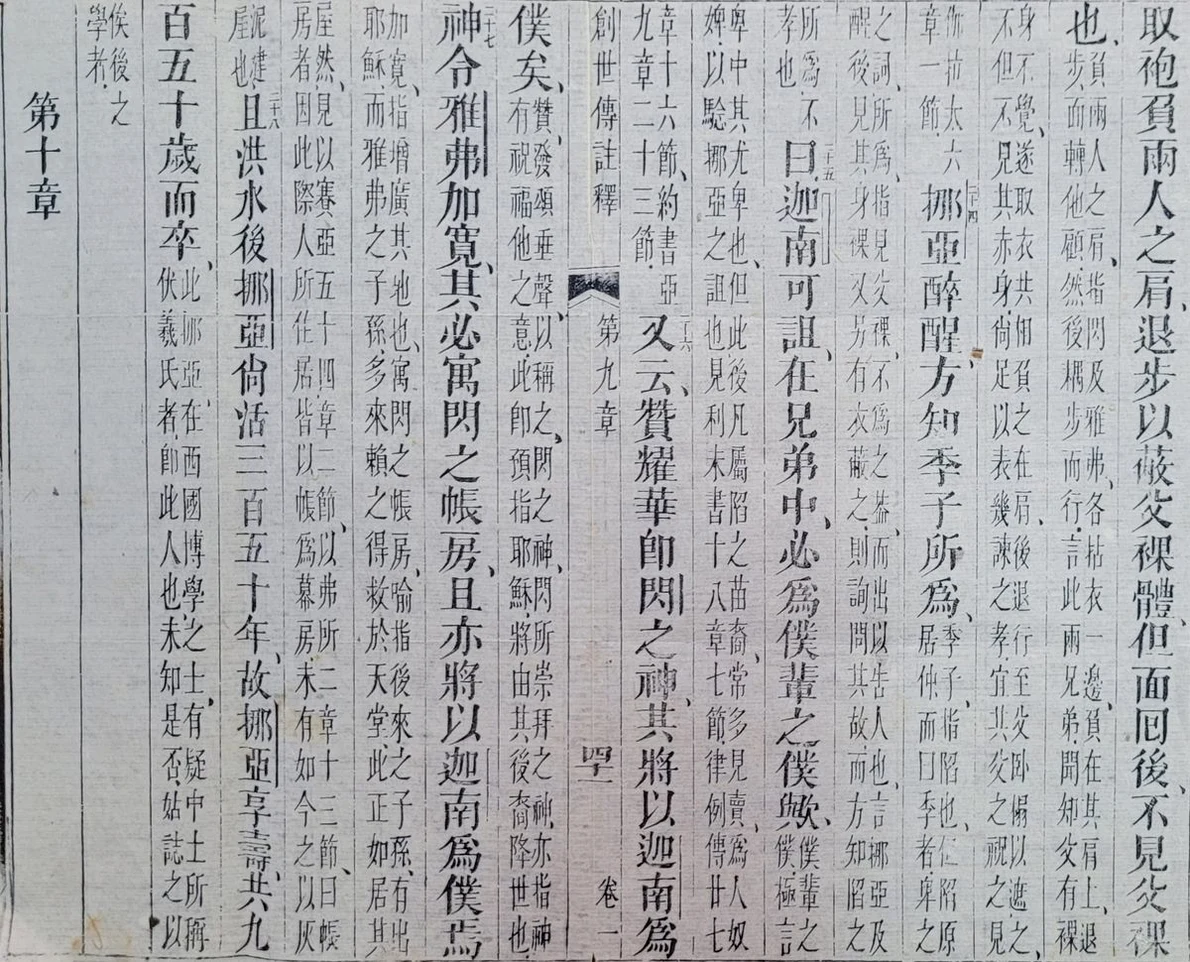 取袍負兩人之肩、退步以蔽父裸體、但面回後、不見父裸
也、負兩人之肩、指閃及雅弗、各拈衣一邊、負在其肩上、退步、面轉他顧、然後耦步而行、言此兩兄弟、聞知父有裸
身不覺、遂取衣共相負之在肩、後退行至父臥榻以遮之、不但不見其赤身、尙足以表幾諫之孝、宜其父之祝之、見
伱拉太六章一節 二十四 挪亞醉醒、方知季子所爲、季子、指陷也、但陷原居仲、而曰季者、卑之
之詞、所爲、指見父裸、不爲之葢、而出以告人也、言挪亞及醒後、見其身裸、又另有衣蔽之、則詢問其故、而方知陷之
所爲不孝也 二十五 曰、迦南可詛、在兄弟中、必爲僕輩之僕歟、僕輩之僕、極言
卑中其尤卑也、但此後凡屬陷之苗裔、常多見賣爲人奴婢、以驗挪亞之詛也、見利未書十八章七節、律例傳廿七
章十六節、約書亞九章二十三節、 二十六 又云、贊耀華卽閃之神、其將以迦南爲
創世傳註釋 第九章 四十一 卷一
僕矣、贊、發頌垂聲、以稱之、閃之神、閃所崇拜之神、亦指神有祝福他之意、此卽預指耶穌、將由其後裔降世也、
二十七 神令雅弗加寬、其必寓閃之帳房、且亦將以迦南爲僕焉
加寬、指增廣其地也、寓閃之帳房、喻指後來之子孫、有出耶穌、而雅弗之子孫、多來賴之得救於天堂、此正如居其
屋然、見以賽亞五十四章二節、以弗所二章十三節、曰帳房者、因此際人所住居、皆以帳爲幕房、未有如今之以灰
泥建屋也、 二十八 且洪水後、挪亞尙活三百五十年、故挪亞享壽、共九
百五十歲而卒、此挪亞、在西國博學之士、有疑中土所稱伏羲氏者、卽此人也、未知是否、姑誌之以
俟後之學者、
第十章